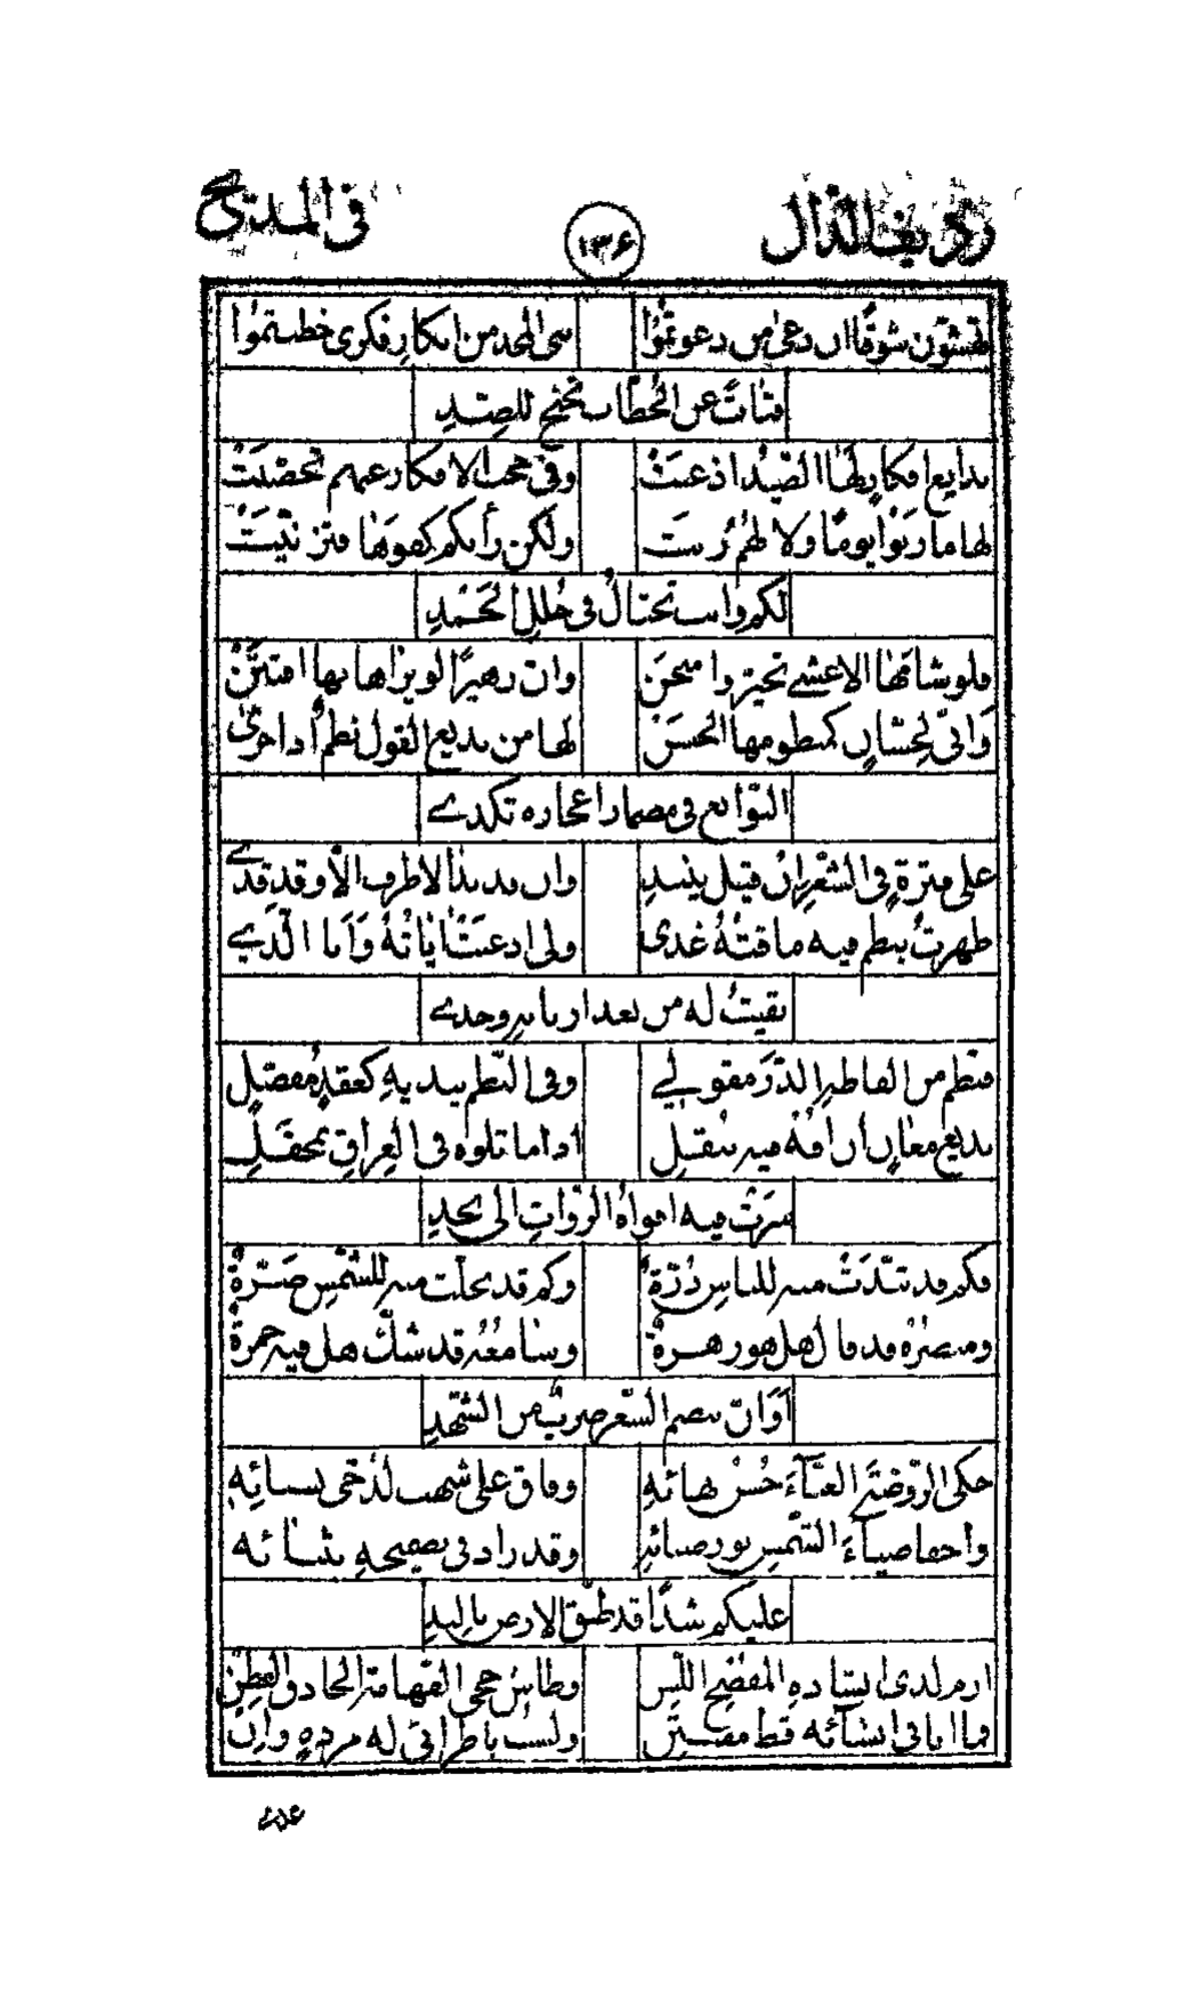 رديف الدال
١٣٦
في المديح
تهشون شوقًا ان دعى من دعوتموا
بني المجد من ابكار فكري خطبتموا
فتاتًا عن الخطّاب تجنح للصدِّ
بدايع افكارٍ لها الصّيد اذعنت
وفي حجب الافكار عنهم تحصّنت
لها ما رنوا يومًا ولا لهم رنت
ولكن رأتكم كفوها فتزيّنت
لكم واستختال في حلل الحمدِ
فلو شامها الاعشى تحيّر وامتحن
وان زهيرًا لو يراها بها افتتن
وانّى لحسّانٍ كمنظومها الحسن
لها من بديع القول نظم اذا جرى
التوابع في مضمار اعجازه تكدي
على فترةٍ في الشعر ان قيل ينفد
وان نديدًا لا طرف الا وقد قدي
ظهرت بنظم فيه ما فته غدي
ولي اذعنت اياته وانا الّذي
بقيت له من بعد اربابه وحدي
فنظم من الفاظه الدّر مقولي
وفي النّظم يبديه كعقدٍ مفصّلِ
بديع معانٍ ان افه فيه ينقل
اذا ما تلوه في العراق بمحفل
سرت فيه افواه الرّوات الى نجدِ
فكم قد تبدّت منه للناس درّة
وكم قد تجلّت منه للشمس ضرّة
ومبصره قد قال هل هو زهرة
وسامعه قد شكّ هل فيه خمرة
او انّ نصم الشعر ضرب من الشهدِ
حكى الروضة الغنّاء حسن بهائه
وفاق على شهب الدجى بسنائه
واخفا ضياء الشمس نور ضيائه
وقد زاد في تصحيحه بثنائه
عليكم شذًا قد طبّق الارض بالندِ
ارم لدى انشاده المفصح اللسن
وطاش حجى الفهامة الحاذق الفطن
فما انا في انشائه قط مفتتن
ولست باطرائي له مزدهٍ وان
عدى